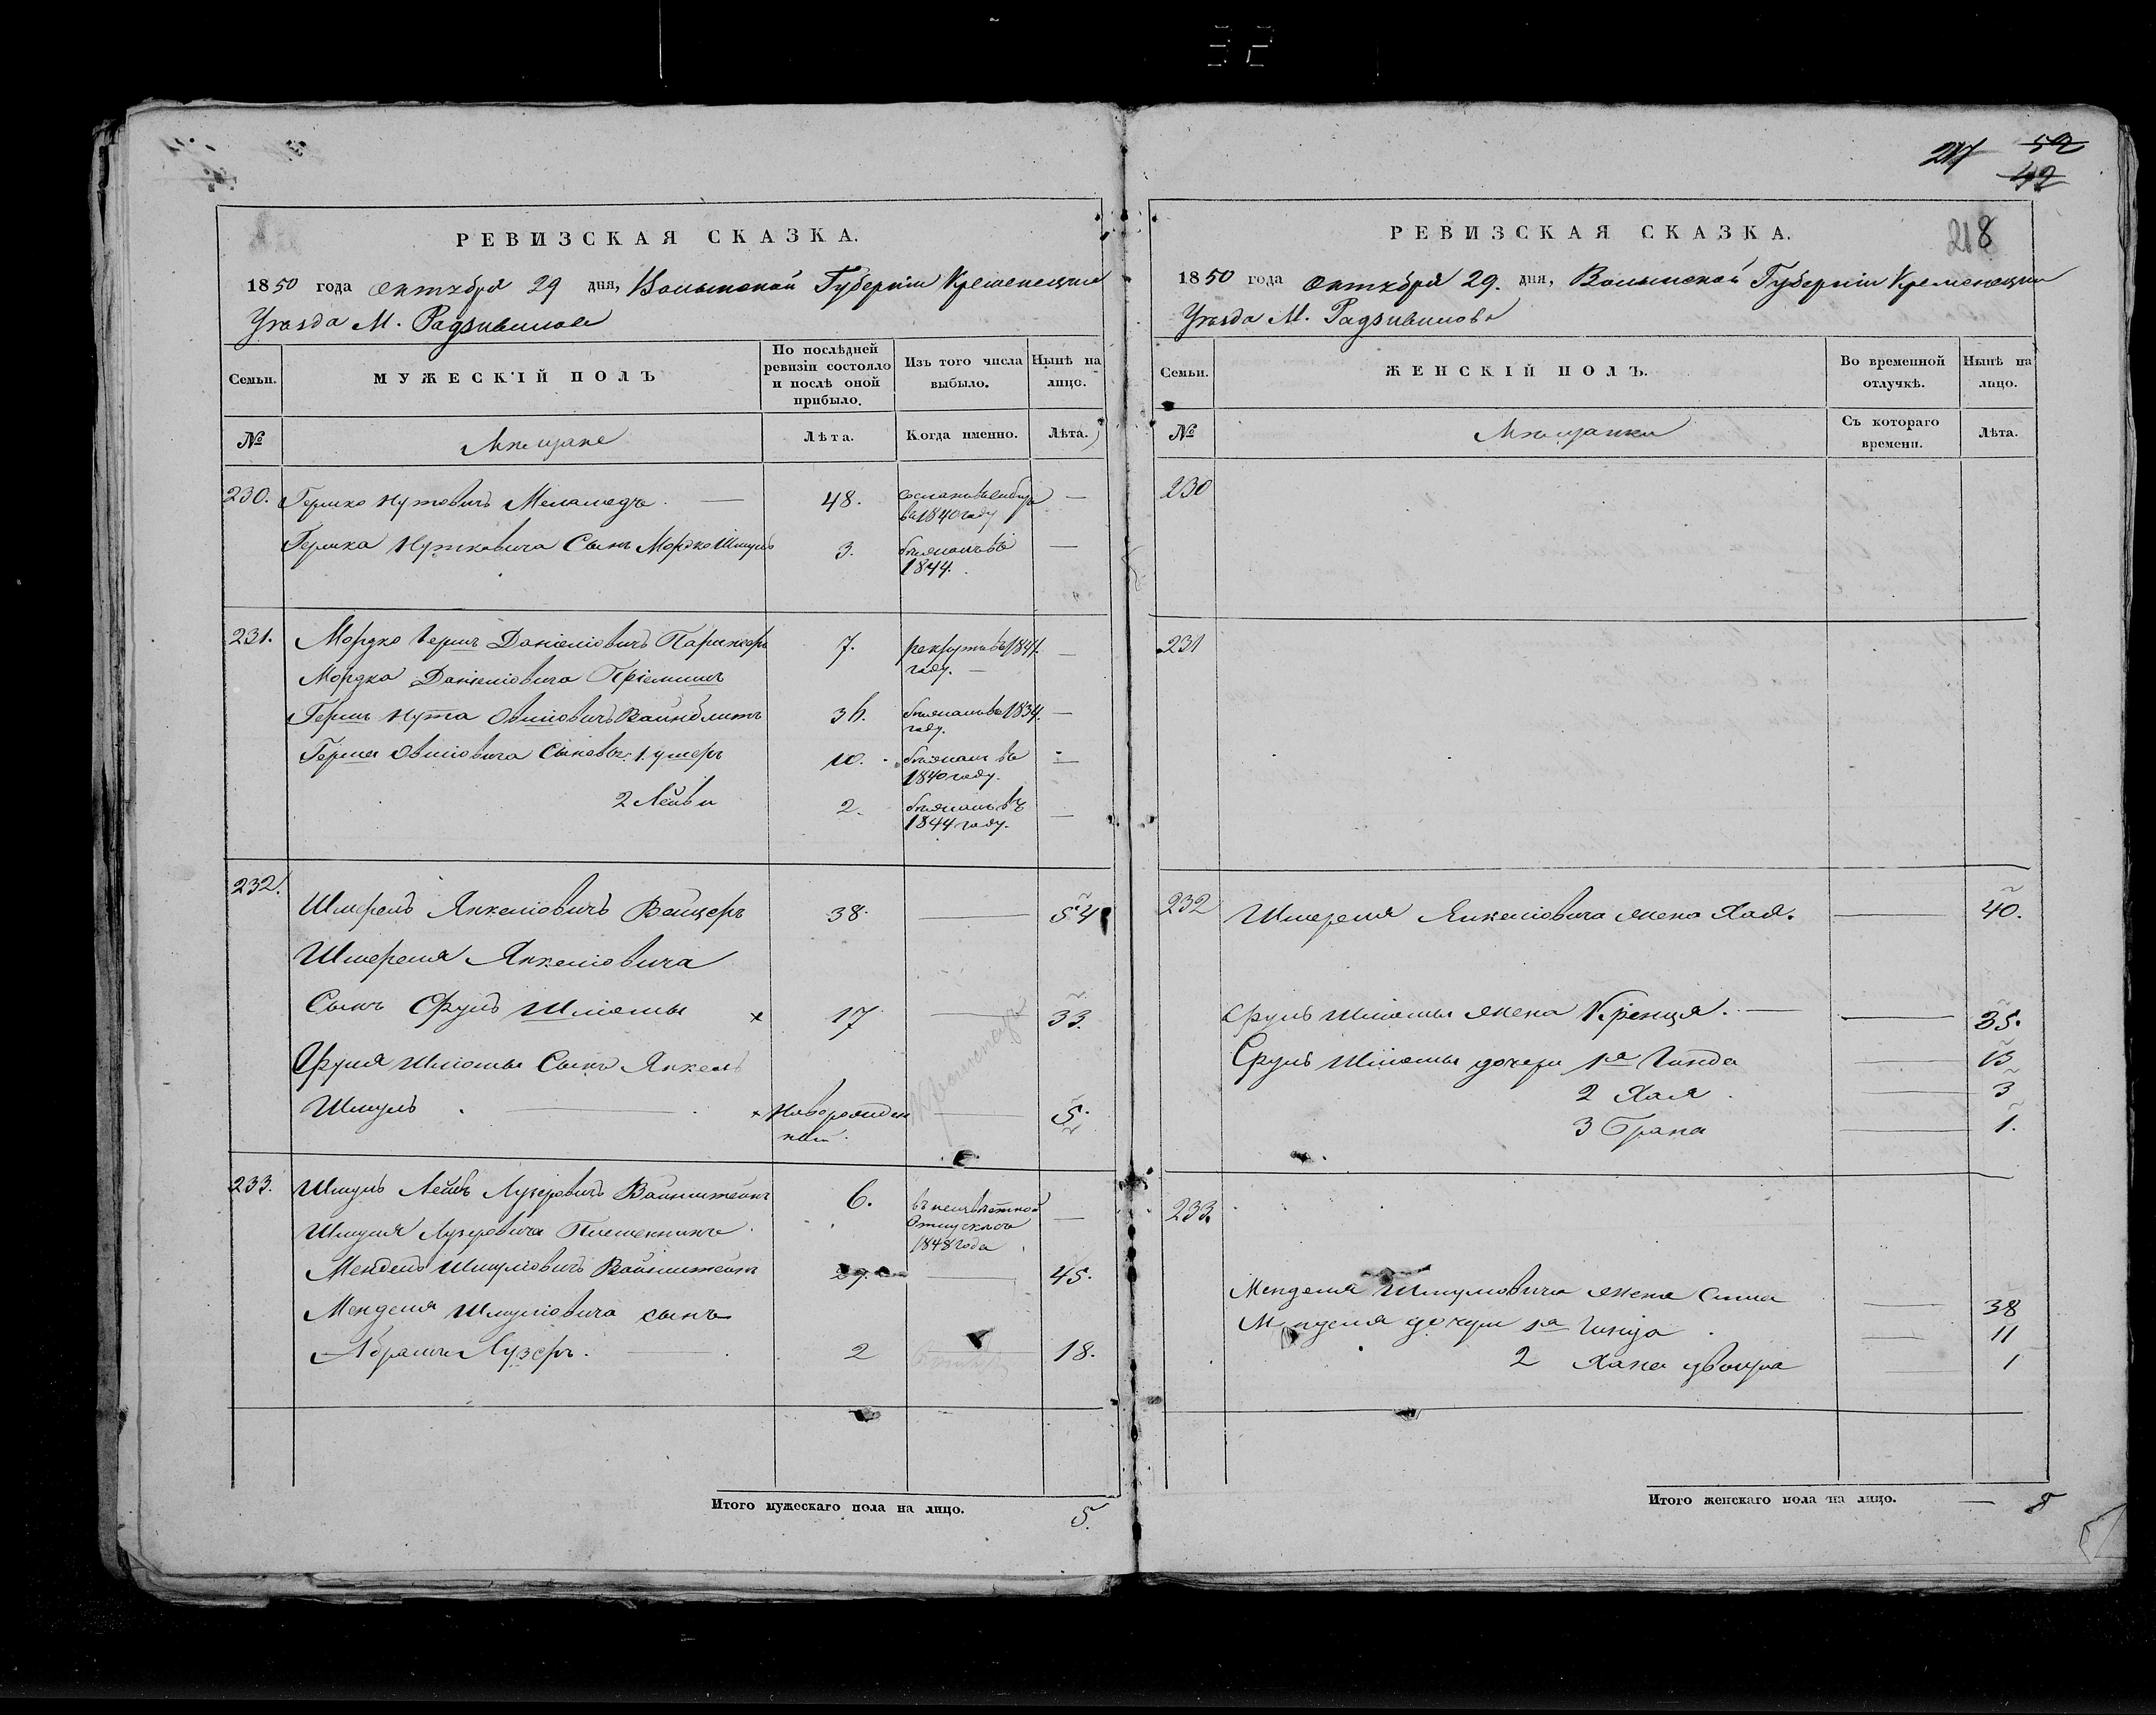 217 52
42
218
РЕВИЗСКАЯ СКАЗКА.
1850 года октября 29 дня, Волынской Губерніи Кременецкаго
Уѣзда М. Радзивилова
Семьи.
МУЖЕСКІЙ ПОЛЪ
По послѣдней ревизіи состояло и послѣ оной прибыло.
Изъ того числа выбыло.
Нынѣ на лицо.
№
Мѣщане
Лѣта.
Когда именно.
Лѣта.
230. Гершко Нутовичъ Меламедъ. — 48. сосланъ въ Сибирь въ 1840 году —
Гершка Нутковича Сынъ Мордко Шмуль 3. 1844. —
231. Мордко Гершъ Даніеліовичъ 7. рекрутъ въ 1841 году. —
Мордка Даніеліовича Пріемышъ
Гершъ Нута Овшіовичъ 36. 1834 году. —
Герша Овшіовича Сыновья: 1. 10. 1840 году. —
2 Лейба 2. 1844 году. —
232. Шмерель Янкеліовичъ Вайцеръ 38. — 54
Шмереля Янкеліовича
Сынъ Сруль Шліома х 17 — 33.
Сруля Шліомы Сынъ Янкель
Шмуль. — х новорожден ный. — 5.
233. Шмуль Лейбъ Лузеровичъ Вайнштейнъ 6. въ безъизвѣстной отлучкѣ съ 1848 года —
Шмуля Лузеровича Племянникъ
Мендель Шмуліовичъ Вайнштейнъ 29. — 45.
Менделя Шмуліовича сынъ
Абрамъ Лузеръ. — 2 — 18.
Итого мужескаго пола на лицо. 5.
РЕВИЗСКАЯ СКАЗКА.
1850 года октября 29. дня, Волынской Губерніи Кременецкаго
Уѣзда М. Радзивилова
Семьи.
ЖЕНСКІЙ ПОЛЪ.
Во временной отлучкѣ.
Нынѣ на лицо.
№
Мѣщанки
Съ котораго времени.
Лѣта.
230
231
232 Шмереля Янкеліовича жена Хая. — 40.
Сруль Шліомы жена Кренця. — 35.
Сруль Шліомы дочери 1а Гинда — 13
2 Хая — 3
3 Брана — 1.
233.
Менделя Шмуліовича жена — 38
Менделя дочери 1а — 11
2 Хана Двойра — 1
Итого женскаго пола на лицо. — 8